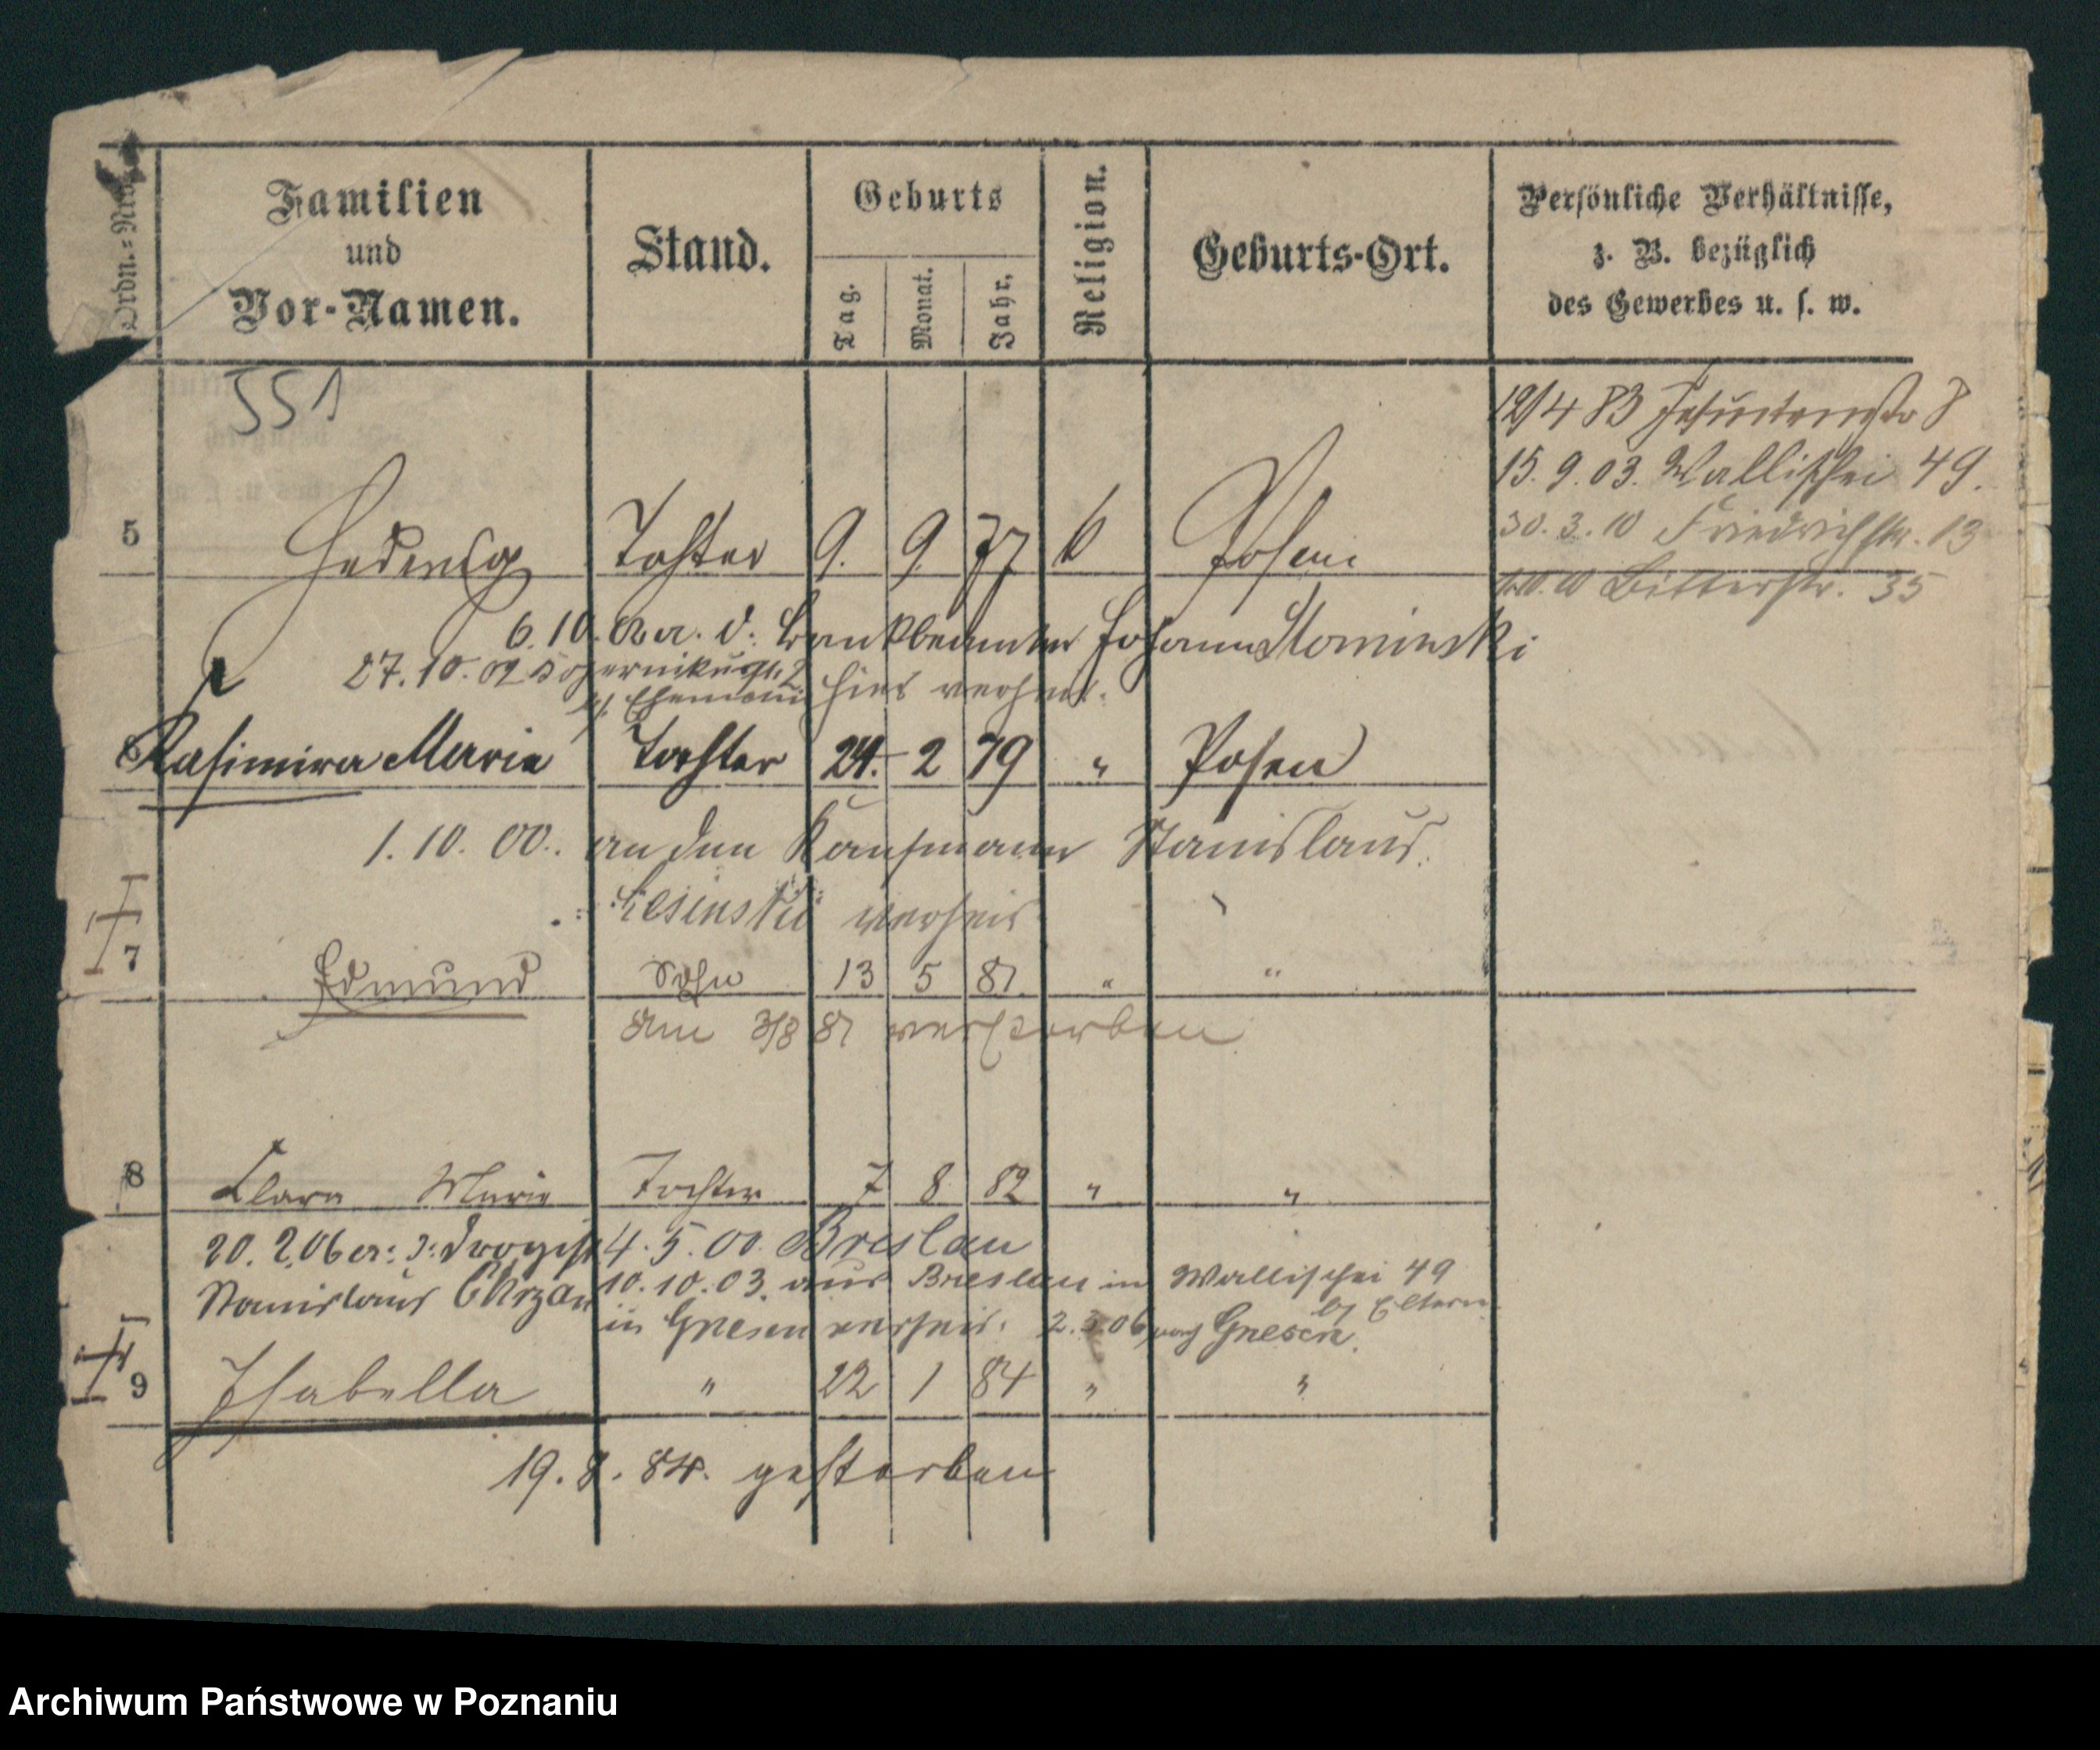 Ordn.=Nro.
Familien
und
Vor-Namen.
Stand.
Geburts
Tag.
Monat.
Jahr.
Religion.
Geburts-Ort.
Persönliche Verhältnisse,
z. B. bezüglich
des Gewerbes u. s. w.
551
12/4 83 Jesuitenstr 8
15. 9. 03. Wallischei 49.
30. 3. 10 Friedrichstr. 13
10. 10 Bitterstr. 35
5 Hedwig Tochter 9. 9. 77 k Posen
6. 10. a. d. Bankbeamten Johann Slominski
27. 10. 02
b/ Ehemann hier verheir.
Kasimira Maria Tochter 24. 2 79 " Posen
1. 10. 00. an den Kaufmann Stanislaus
verheir
7 Edmund Sohn 13 5 81 " "
Am 3/8 81 verstorben
8 Clara Marie Tochter 7 8 82 " "
20. 2. 06 a: d: Drogist 4. 5. 00. Breslau
Stanislaus Chrzan 10. 10. 03. aus Breslau in Wallischei 49
b/ Eltern.
in Gnesen verheir. 2. 3. 06 nach Gnesen.
9 Isabella " 22 1 84 " "
19. 8. 84. gestorben
Archiwum Państwowe w Poznaniu